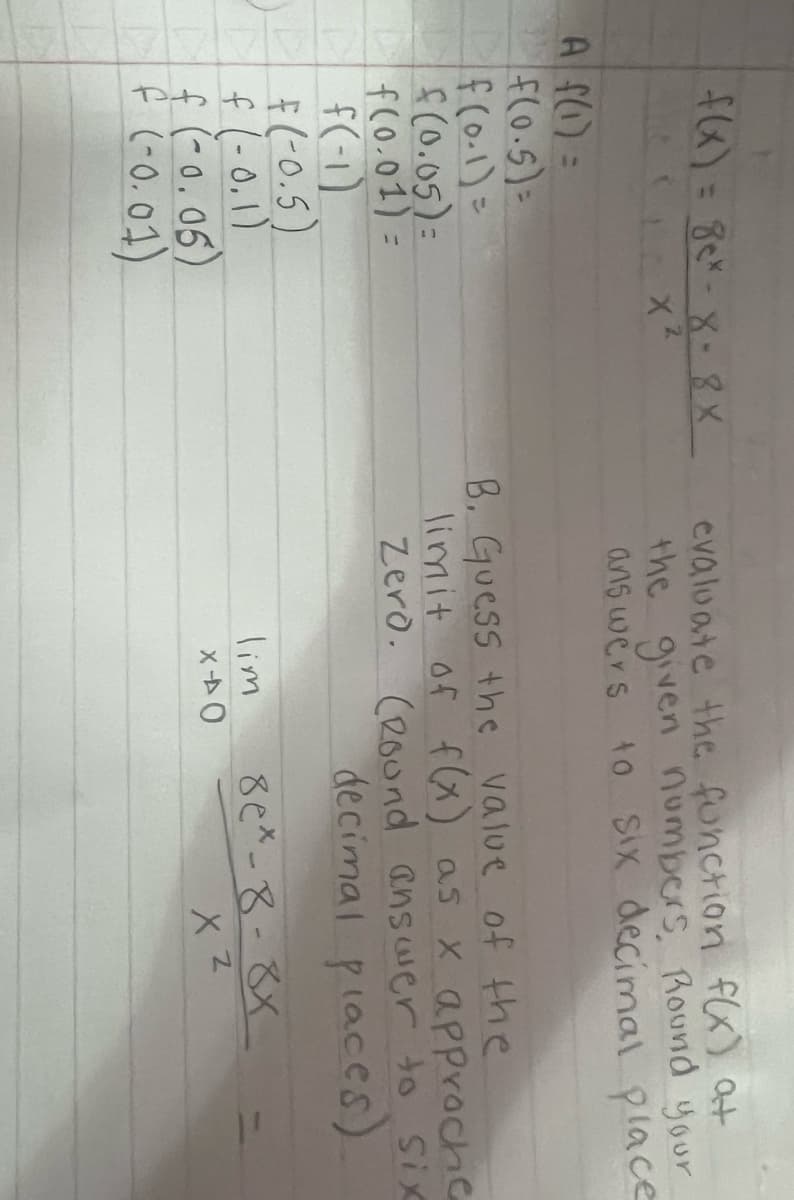 f(x) = 8eˣ - 8 - 8x / x²
evaluate the function f(x) at
the given numbers. Round your
answers to six decimal place
A f(1) =
f(0.5) =
f(0.1) =
f(0.05) =
f(0.01) =
f(-1)
f(-0.5)
f(-0.1)
f(-0.05)
f(-0.01)
B. Guess the value of the
limit of f(x) as x approche
zero. (Round answer to six
decimal places)
lim x→0 8eˣ - 8 - 8x / x² =